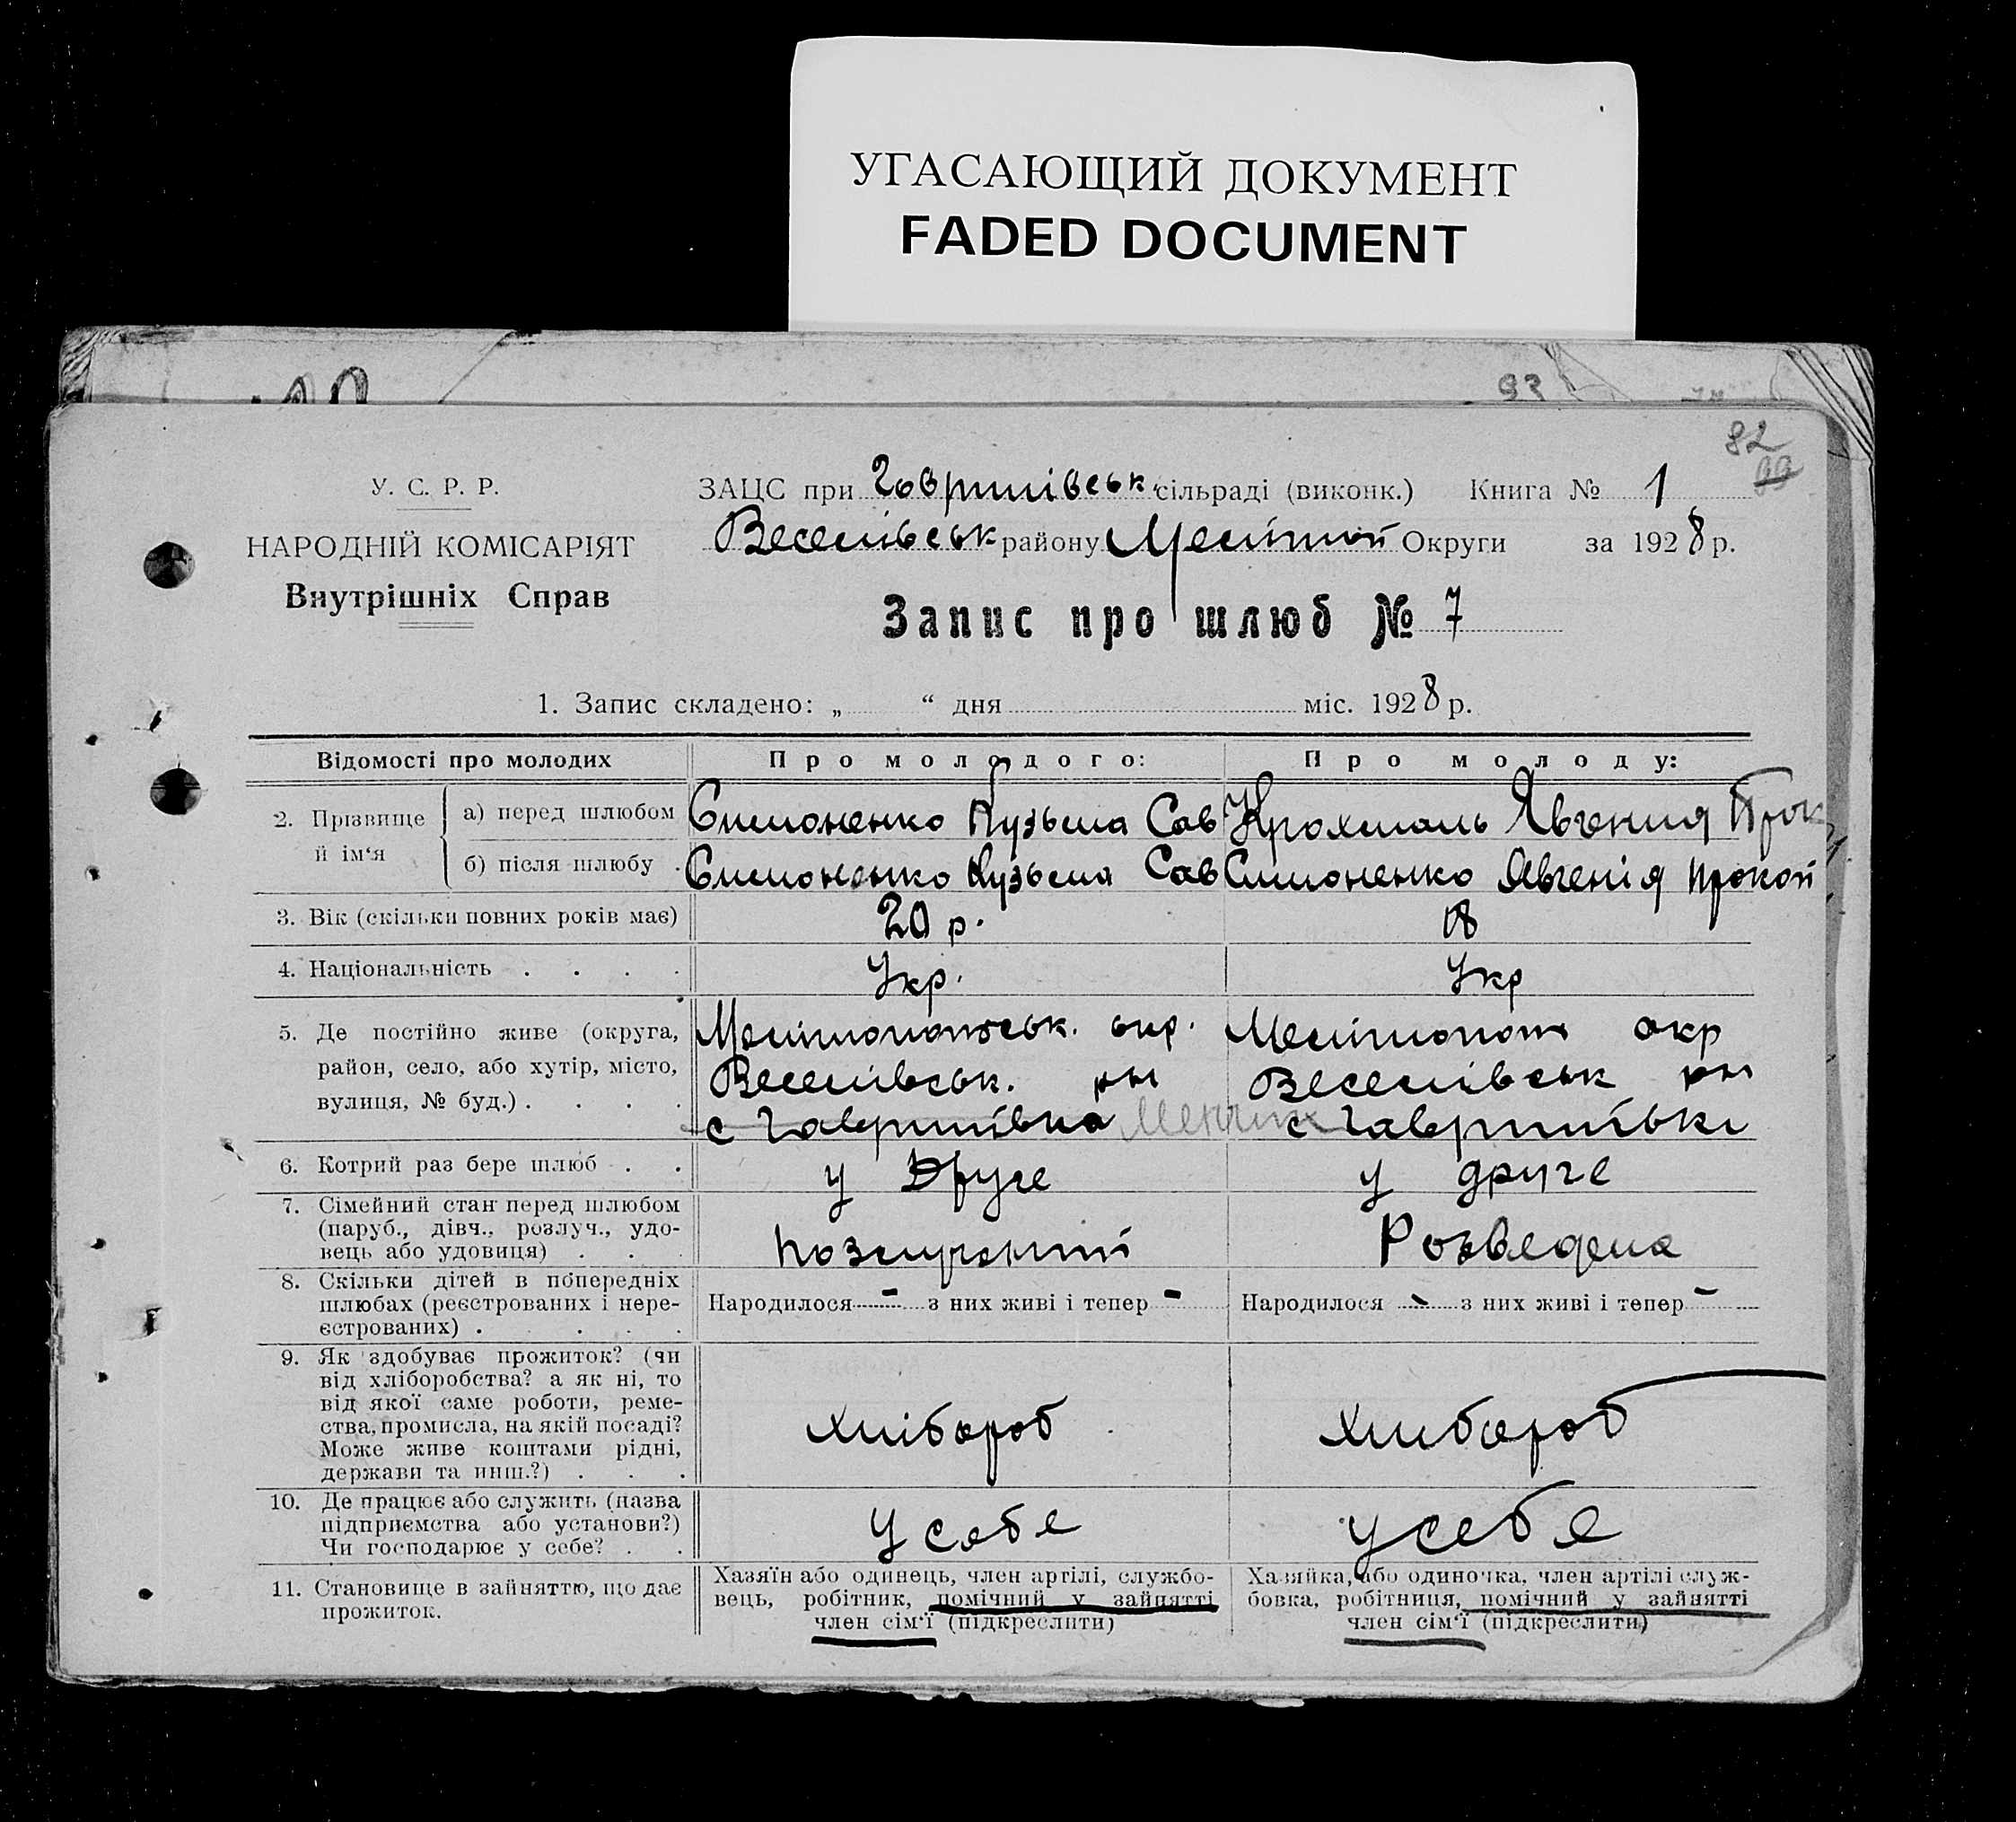 УГАСАЮЩИЙ ДОКУМЕНТ
FADED DOCUMENT
93
82
99
У. С. Р. Р.
НАРОДНІЙ КОМІСАРІЯТ
Внутрішніх Справ
ЗАЦС при Гаврилівськ. сільраді (виконк.) Книга № 1
Веселівськ району Меліт. Округи за 1928 р.
Запис про шлюб № 7
1. Запис складено: „ “ дня міс. 1928 р.
Відомості про молодих
Про молодого:
Про молоду:
2. Прізвище й ім‘я
а) перед шлюбом
Симоненко Кузьма Сав
Крохмаль Явгения Прок
б) після шлюбу
Симоненко Кузьма Сав
Симоненко Явгенія Прокоп
3. Вік (скільки повних років має)
20 р.
18
4. Національність . . . .
Укр.
Укр
5. Де постійно живе (округа,
район, село, або хутір, місто,
вулиця, № буд.) . . . .
Мелітопольськ. окр.
Веселівськ. рн
с Гаврилівка
Мелітополь окр
Веселівськ рн
с Гаврилівкі
6. Котрий раз бере шлюб . .
у Друге
у друге
7. Сімейний стан перед шлюбом
(паруб., дівч., розлуч., удо-
вець або удовиця) . . .
Розведена
8. Скільки дітей в попередніх
шлюбах (реєстрованих і нере-
єстрованих) . . . . .
Народилося - з них живі і тепер -
Народилося - з них живі і тепер -
9. Як здобуває прожиток? (чи
від хліборобства? а як ні, то
від якої саме роботи, реме-
ства, промисла, на якій посаді?
Може живе коштами рідні,
держави та инш.?) . . .
хлібороб
хлибороб
10. Де працює або служить (назва
підприємства або установи?)
Чи господарює у себе? . .
У себе
у себе
11. Становище в зайняттю, що дає
прожиток.
Хазяїн або одинець, член аргілі, службо-
вець, робітник, помічний у зайнятті
член сім‘ї (підкреслити)
Хазяйка, або одиночка, член артілі служ-
бовка, робітниця, помічний у зайнятті
член сім‘ї (підкреслити)